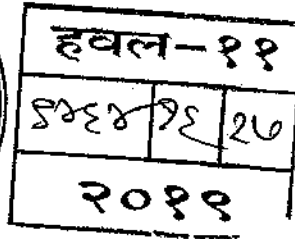 हवल-११
९४६४ १६ २७
२०१९